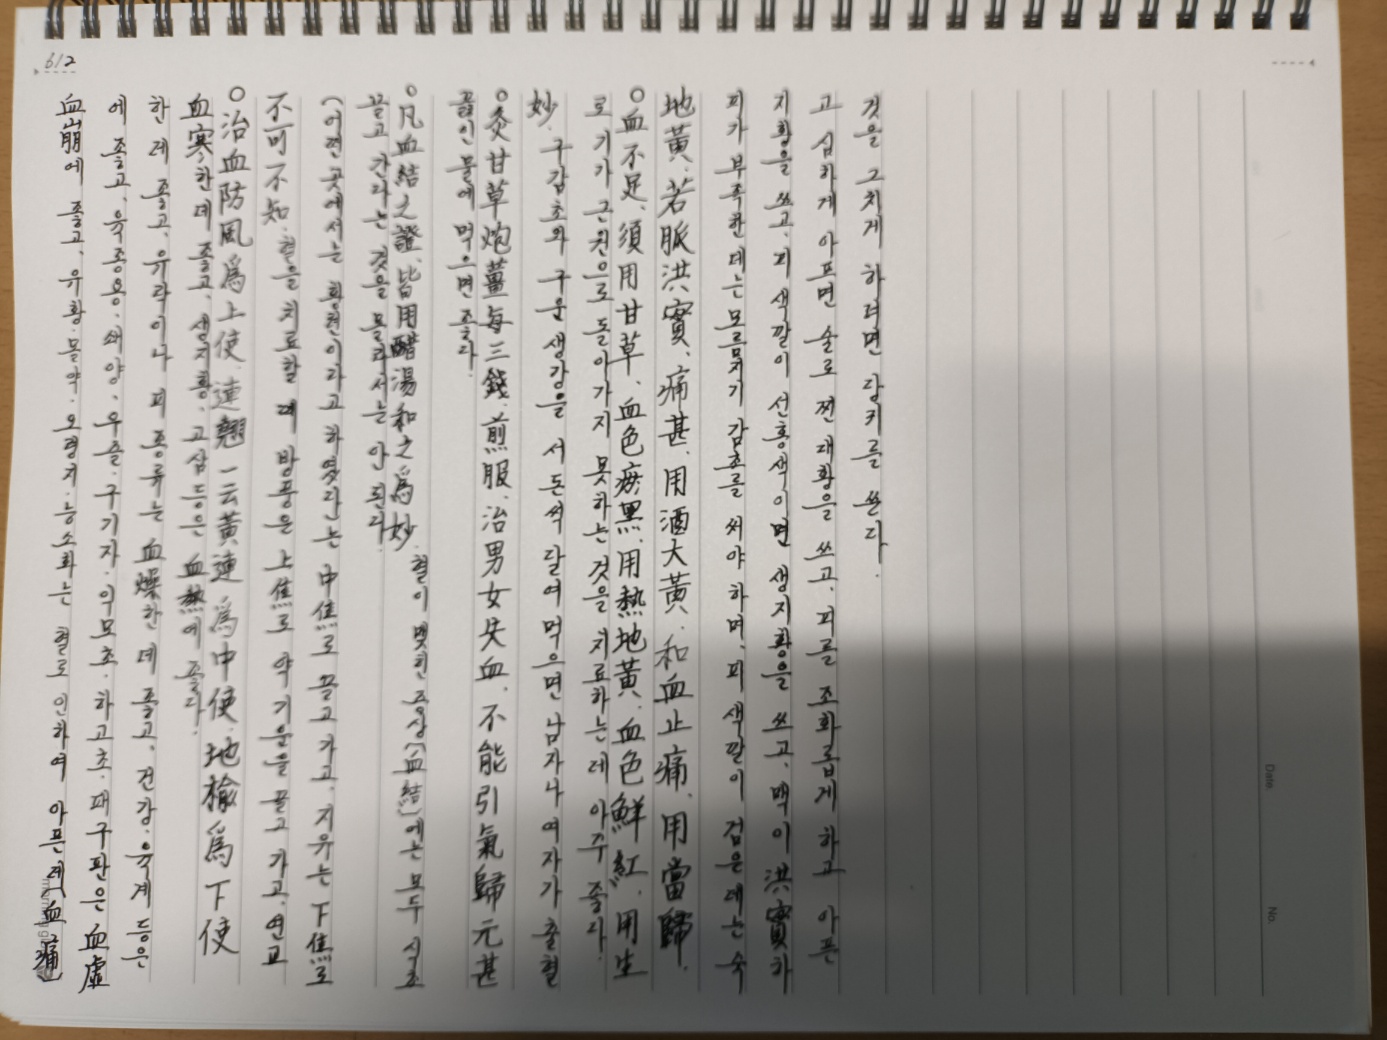 612
血崩에 좋고, 유황·몰약·오령지·능소화는 혈로 인하여 아픈데(血痛)
에 좋고, 육종용·쇄양·우슬·구기자·익모초·하고초·패구판은 血虛
한 데 좋고, 유락이나 피 종류는 血燥한 데 좋고, 건강·육계 등은
血寒한 데 좋고, 생지황·고삼 등은 血熱에 좋다.
○治血防風爲上使, 連翹一云黃連爲中使, 地楡爲下使
不可不知. 혈을 치료할 때 방풍은 上焦로 약 기운을 끌고 가고, 연교
(어떤 곳에서는 황련이라고 하였다)는 中焦로 끌고 가고, 지유는 下焦로
끌고 간다는 것을 몰라서는 안 된다.
○凡血結之證, 皆用醋湯和之爲妙. 혈이 맺힌 증상(血結)에는 모두 식초
끓인 물에 먹으면 좋다.
○灸甘草炮薑每三錢, 煎服, 治男女失血, 不能引氣歸元甚
妙. 구감초와 구운 생강을 서 돈씩 달여 먹으면 남자나 여자가 출혈
로 기가 근원으로 돌아가지 못하는 것을 치료하는데 아주 좋다.
○血不足, 須用甘草, 血色瘀黑, 用熟地黃, 血色鮮紅, 用生
地黃, 若脈洪實, 痛甚, 用酒大黃, 和血止痛, 用當歸.
피가 부족한 데는 모름지기 감초를 써야 하며, 피 색깔이 검은 데는 숙
지황을 쓰고, 피 색깔이 선홍색이면 생지황을 쓰고, 맥이 洪實하
고 심하게 아프면 술로 찐 대황을 쓰고, 피를 조화롭게 하고 아픈
것을 그치게 하려면 당귀를 쓴다.
Date.
No.